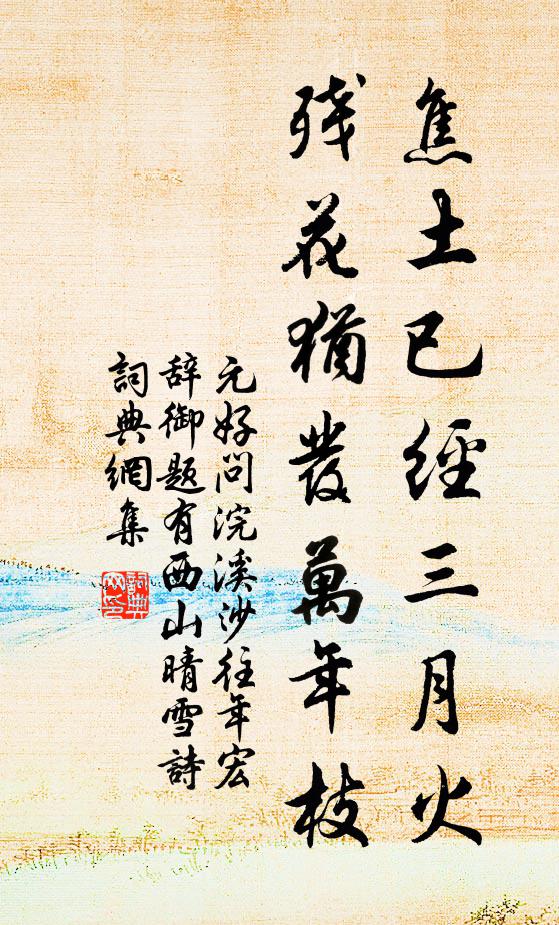 焦土已經三月火
殘花猶發萬年枝
元好問浣溪沙往年宏
辞御題有西山晴雪詩
詞典網集
詞典網印